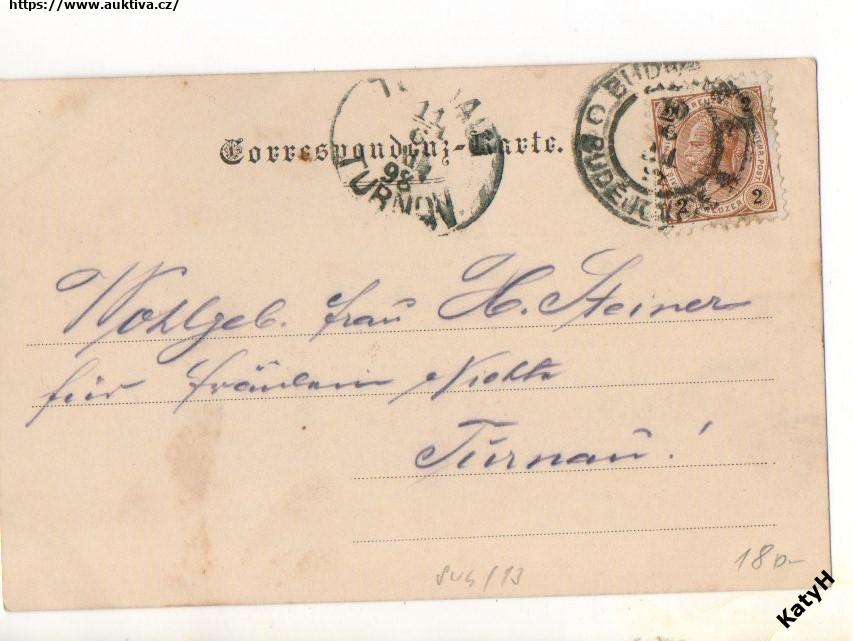 https://www.auktiva.cz/
Correspondenz-Karte.
TURNAU
11
98
TURNOV
BUDW
BUDĚJO
2
2
Wohlgeb. Frau H. Steiner
für Fräulein Nichte
Turnau!
180-
KatyH